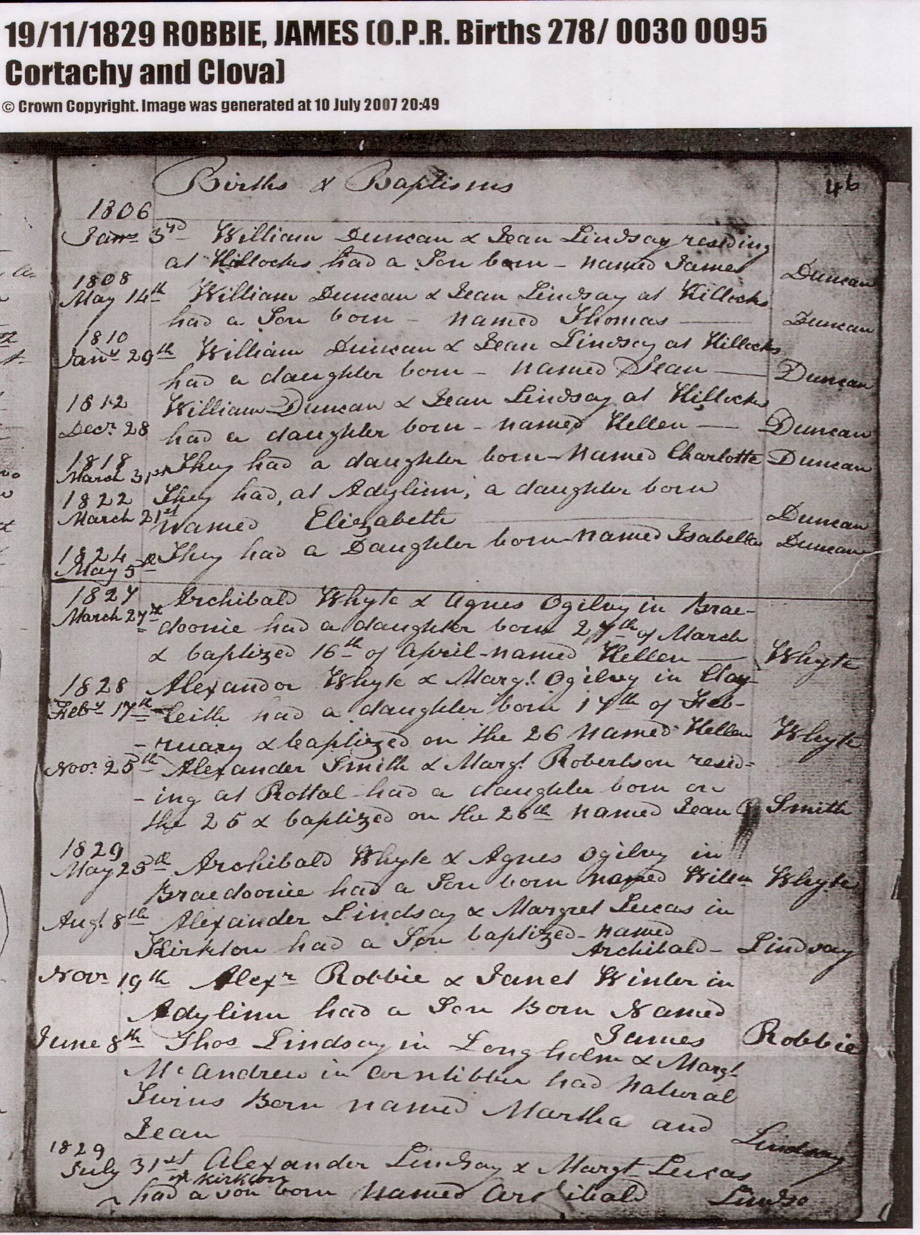 19/11/1829 ROBBIE, JAMES (O.P.R. Births 278/ 0030 0095
Cortachy and Clova)
© Crown Copyright. Image was generated at 10 July 2007 20:49
Births & Baptisms 46
1806
3rd William Duncan & Jean Lindsay residing
at Hillocks had a Son born - named James Duncan
1808
May 14th William Duncan & Jean Lindsay at Hillocks
had a Son born - named Thomas Duncan
1810
Jany 29th William Duncan & Jean Lindsay at Hillocks
had a daughter born - named Jean Duncan
1812 William Duncan & Jean Lindsay at Hillocks
Decr 28 had a daughter born - named Hellen Duncan
1818 They had a daughter born - Named Charlotte Duncan
March 31st
1822 They had, at Adylinn, a daughter born
March 21st Named Elizabeth Duncan
1824 They had a Daughter born - named Isabella Duncan
May 5
1827 Archibald Whyte & Agnes Ogilvy in Brae-
March 27th doonie had a daughter born 27th of March
& baptized 16th of April - named Hellen Whyte
1828 Alexander Whyte & Margt. Ogilvy in Clay-
Feby 17th leith had a daughter born 17th of Feb-
-ruary & baptized on the 26 Named Hellen Whyte
Novr 25th Alexander Smith & Margt. Robertson resid-
-ing at Rottal had a daughter born on
the 25 & baptized on the 26th named Jean Smith
1829
May 25th Archibald Whyte & Agnes Ogilvy in
Braedoonie had a Son born named Whyte
Augt 8th Alexander Lindsay & Margret Lucas in
Kirkton had a Son baptized - named
Archibald - Lindsay
Novr 19th Alexr Robbie & Janet Winter in
Adylinn had a Son Born Named
James Robbie
June 8th Thos Lindsay in Longholm & Margt
McAndrew in had Natural
Twins Born named Martha and
Jean Lindsay
1829
July 31st Alexander Lindsay & Margt Lucas
in Kirkton
had a son born Named Archibald